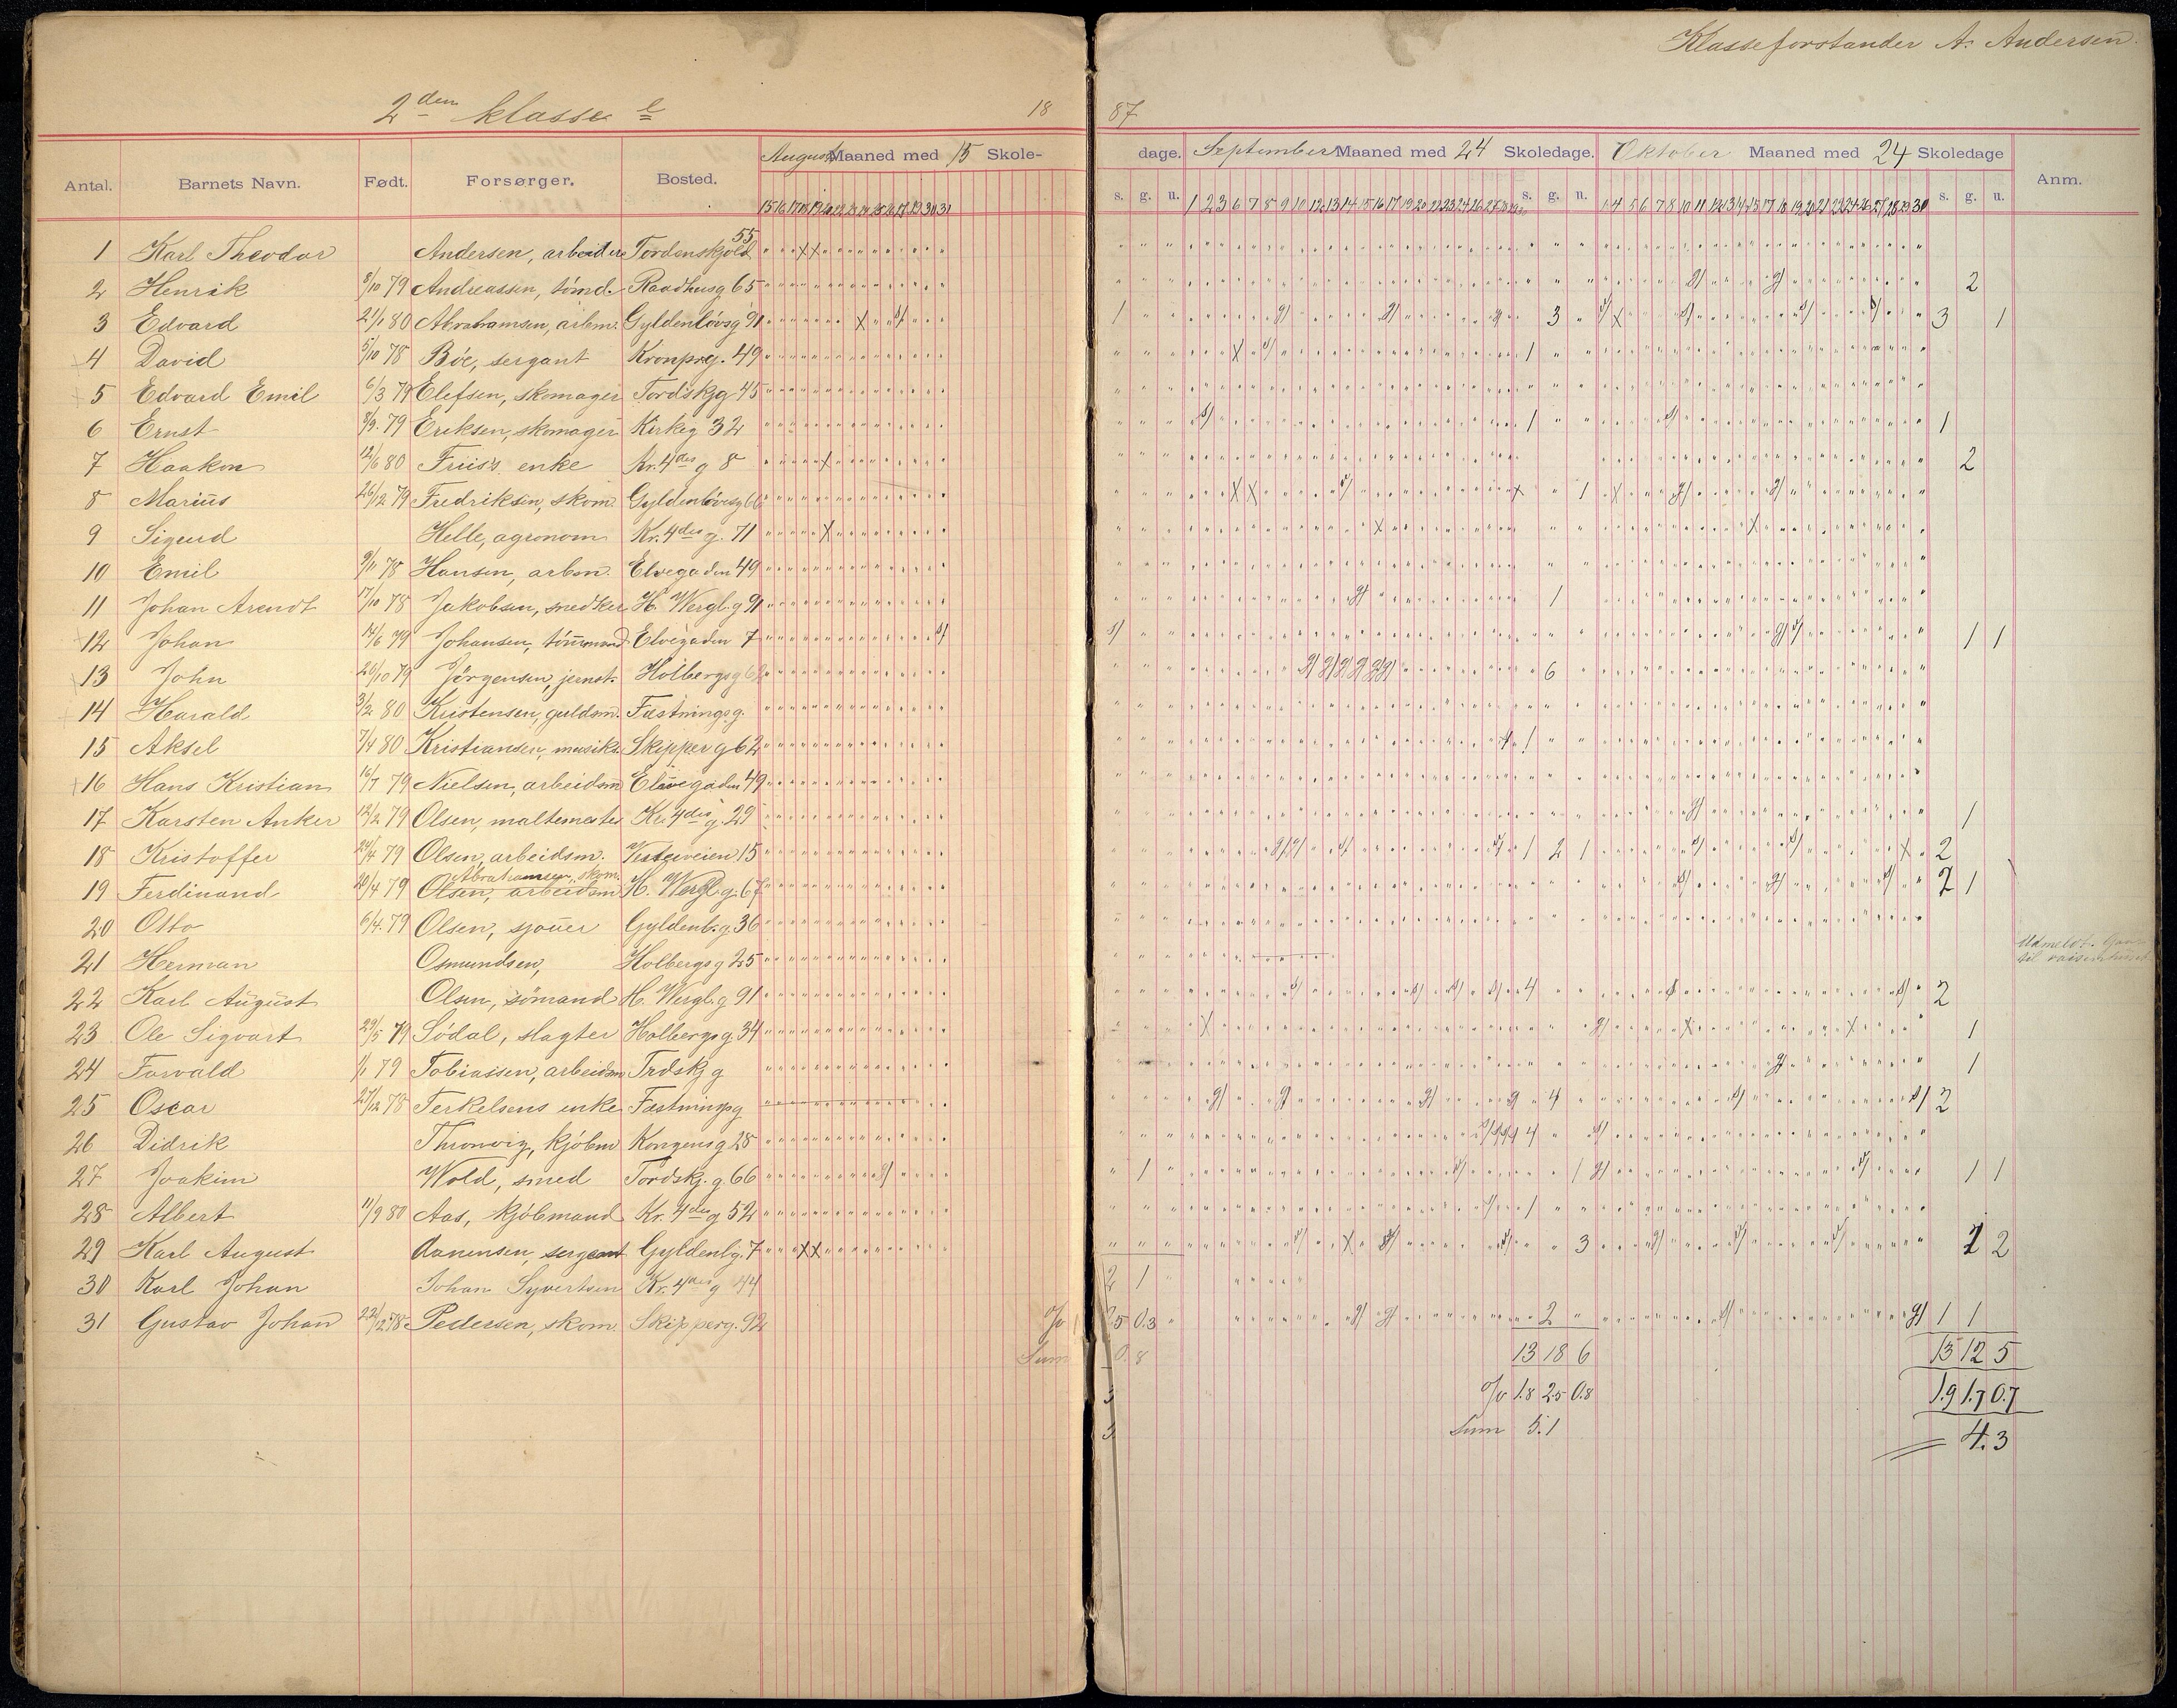 Klasseforstander A. Andersen.
2den klasse e 18 87
Antal. Barnets Navn. Født. Forsørger. Bosted. August Maaned med 15 Skole- dage. September Maaned med 24 Skoledage. Oktober Maaned med 24 Skoledage Anm.
s. g. u. s. g. u. s. g. u.
1 Karl Theodor Andersen, arbeider Tordenskjold 55
2 Henrik 8/10 79 Andreassen, tömd. Raadhusg 65 2
3 Edvard 21/1 80 Abrahamsen, arbm. Gyldenlövsg 91 1 3 3 1
4 David 5/10 78 Böe, sergant Kronprg. 49 1
5 Edvard Emil 6/3 79 Elefsen, skomager Tordskjg 45
6 Ernst 8/9. 79 Eriksen, skomager Kirkeg 32 1 1
7 Haakon 12/6 80 Friis's enke Kr. 4des g 8 2
8 Marius 26/12 79 Fredriksen, skom. Gyldenlövesg 66 1
9 Sigurd Helle, agronom Kr. 4des g. 71
10 Emil 9/11 78 Hansen, arbm. Elvegaden 49
11 Johan Arendt 17/10 78 Jakobsen, snedker H. Wergl. g 91 1
12 Johan 14/6 79 Johansen, tömmermd Elvegaden 7 1 1
13 John 26/10 79 Jörgensen, jernst. Holbergsg 62 6
14 Harald 3/2 80 Kristensen, guldsm. Fæstningsg.
15 Aksel 7/4 80 Kristiansen, musikr. Skipperg 62 1
16 Hans Kristian 16/7 79 Nielsen, arbeidsm Elvegaden 49
17 Karsten Anker 12/2 79 Olsen, maltemester Kr. 4des g. 29 1
18 Kristoffer 24/4 79 Olsen, arbeidsm. Vesterveien 15 1 2 1 2
19 Ferdinand 20/4 79 Olsen, arbeidsm Abrahamsen, skom. H. Wergl. g. 67 2 1
20 Otto 6/4. 79 Olsen, sjouer Gyldenl. g. 36
21 Herman Osmundsen, Holbergsg 25 Udmeldt.
22 Karl August Olsen, sömand H. Wergl. g 91 4 2
23 Ole Sigvart 29/5 79 Södal, slagter Holbergsg. 34 1
24 Torvald 1/1 79 Tobiassen, arbeidsm Trdskj g 1
25 Oscar 27/12 78 Terkelsens enke Fæstningsg 4 2
26 Didrik Thronvig, kjöbm Kongensg 28 4
27 Joakim Wold, smed Tordskj. g. 66 1 1 1 1
28 Albert 11/9 80 Aas, kjöbmand Kr. 4des g 52 1
29 Karl August Aanensen, sergeant Gyldenlg. 7 3 1 2
30 Karl Johan Johan Syvertsen Kr. 4des g 44 2 1
31 Gustav Johan 22/12 78 Pedersen, skom. Skipperg. 92 % 0.3 2 1 1
Sum 0.8 13 18 6 13 12 5
% 1.8 2.5 0.8 1.9 1.7 0.7
Sum 5.1 4.3